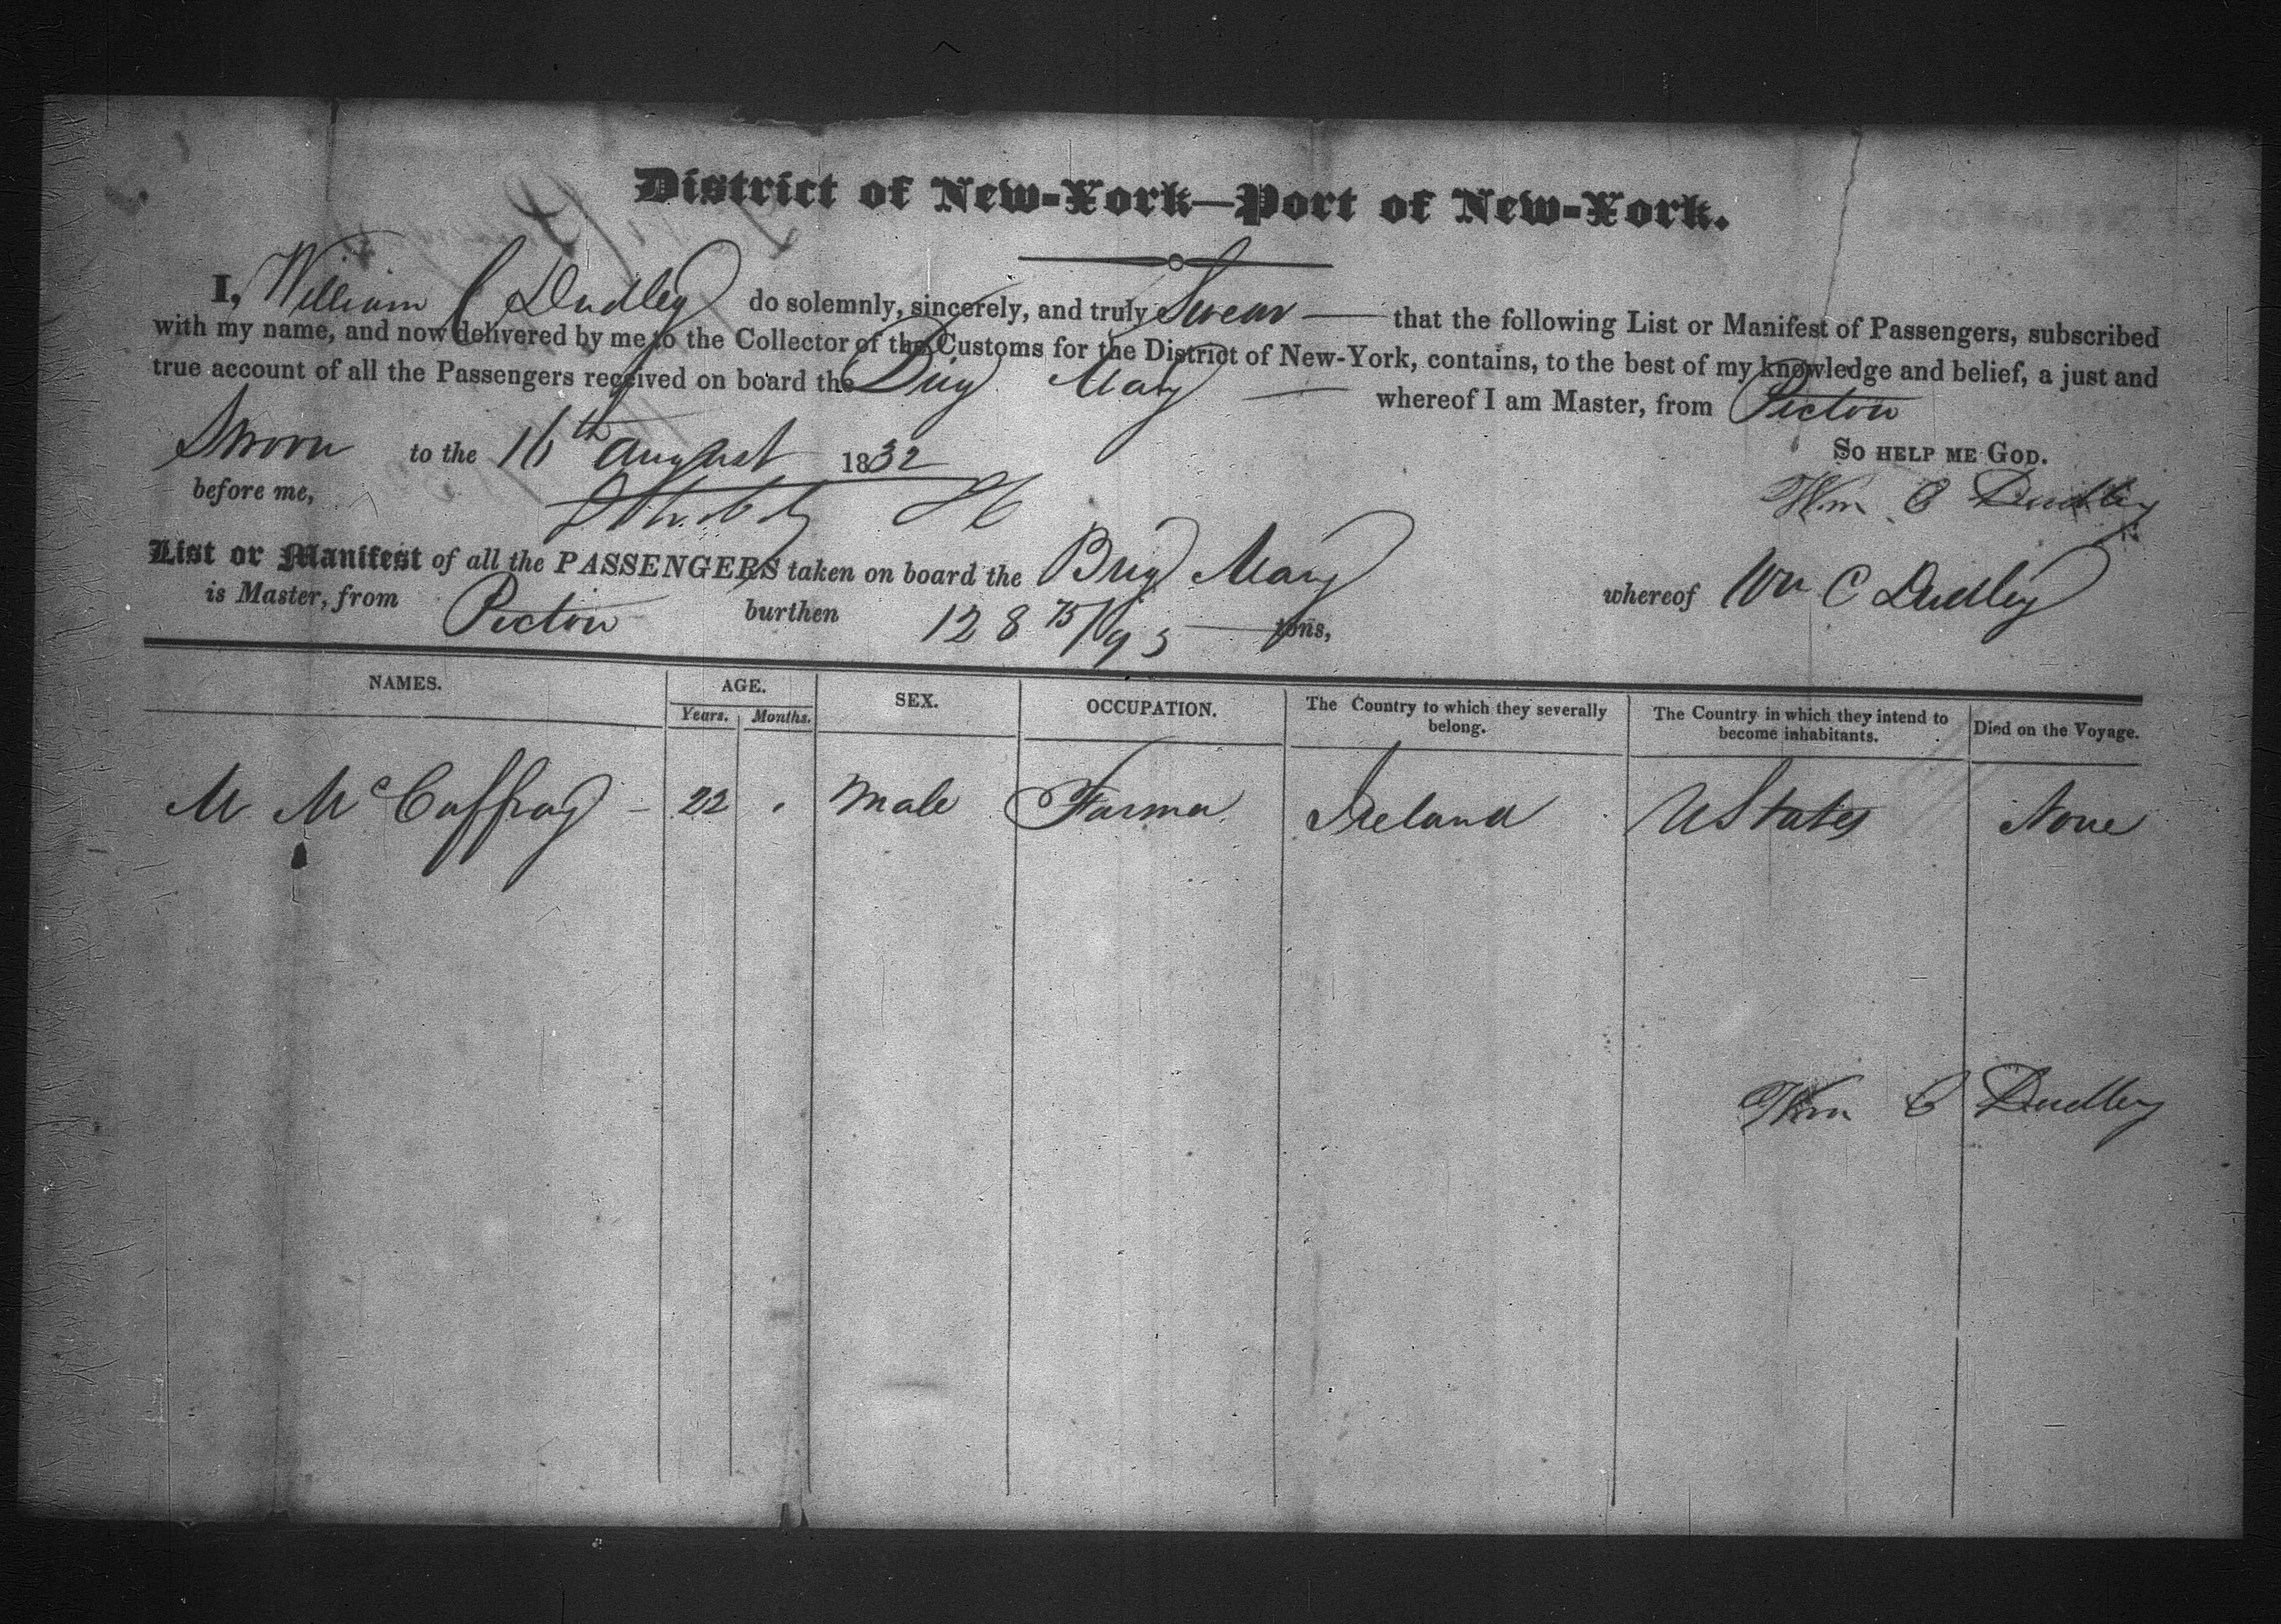 District of New-York—Port of New-York.
I, William C Dudley do solemnly, sincerely, and truly Swear — that the following List or Manifest of Passengers, subscribed
with my name, and now delivered by me to the Collector of the Customs for the District of New-York, contains, to the best of my knowledge and belief, a just and
true account of all the Passengers received on board the Brig Mary — whereof I am Master, from Pictou
Sworn to the 16th August 1832 So help me God.
before me, Wm C Dudley
List or Manifest of all the PASSENGERS taken on board the Brig Mary whereof Wm C Dudley
is Master, from Pictou burthen 128 75/95 — tons,
NAMES. AGE. SEX. OCCUPATION. The Country to which they severally belong. The Country in which they intend to become inhabitants. Died on the Voyage.
Years. Months.
M McCaffray - 22 . Male Farmer Ireland U States None
Wm C Dudley